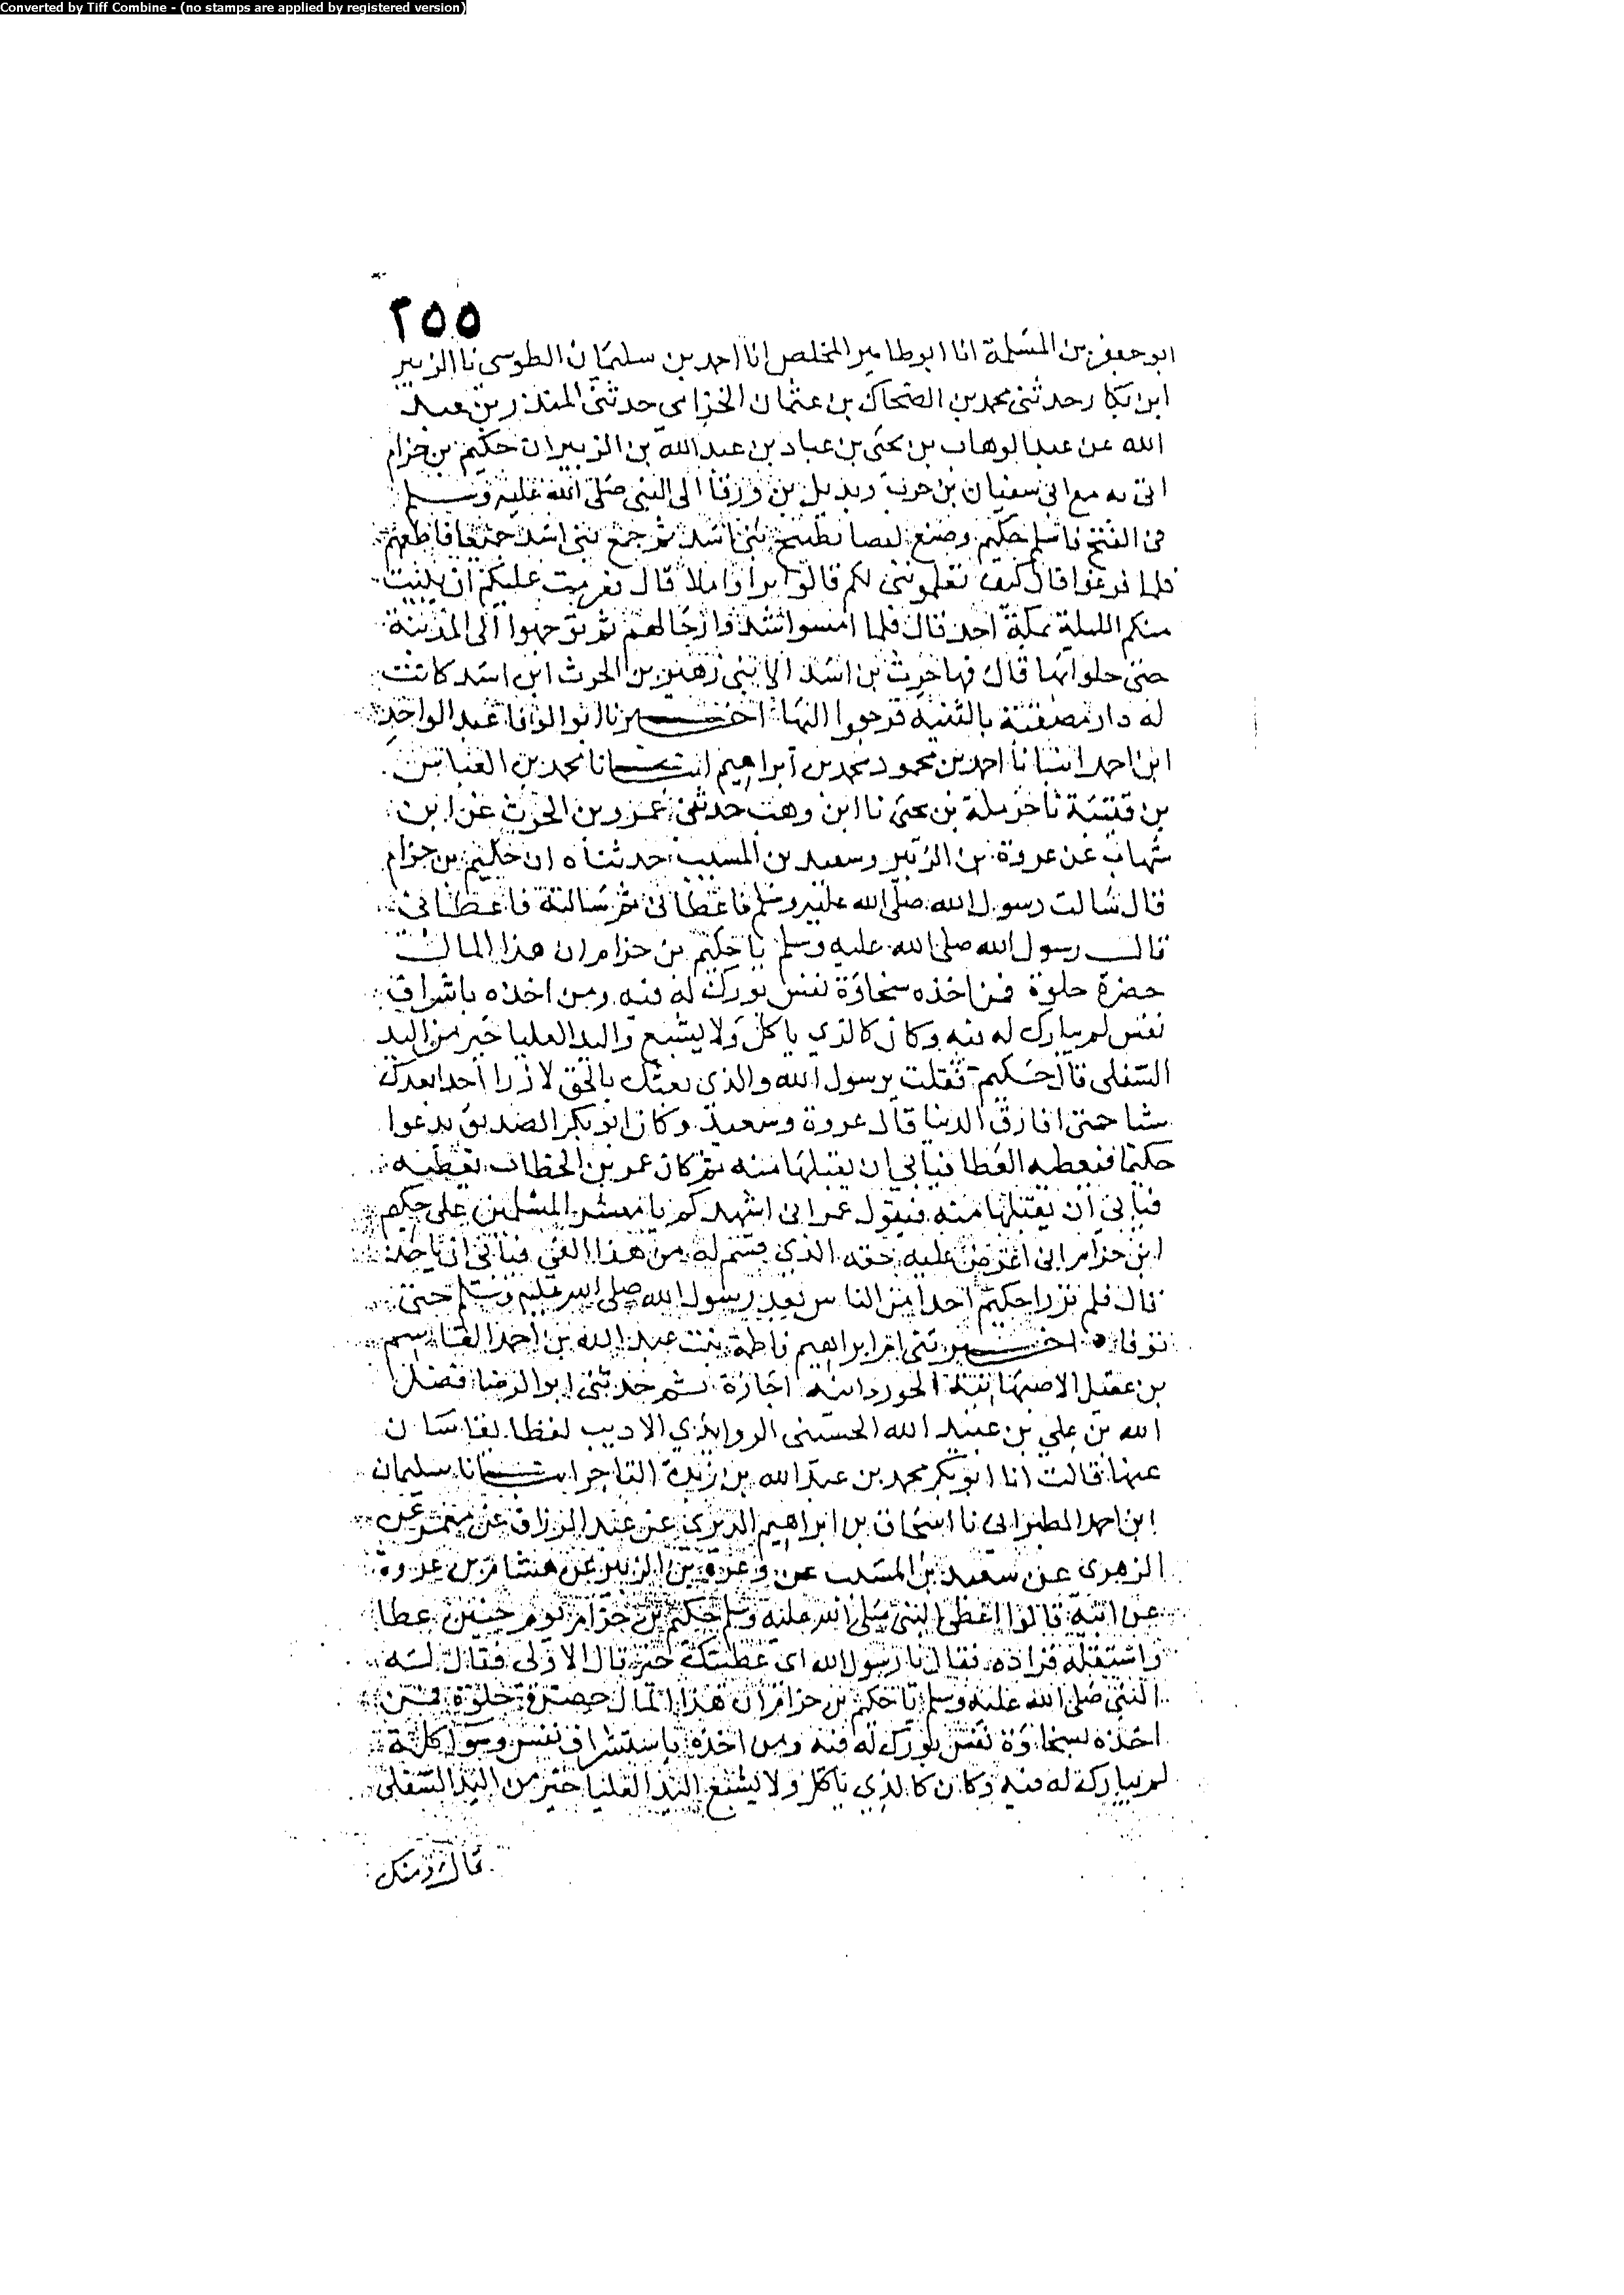 Converted by Tiff Combine - (no stamps are applied by registered version)
٢٥٥
ابو جعفر بن المسلمة انا ابو طاهر المخلص انا احمد بن سليمان الطوسى نا الزبير
ابن بكار حدثنى محمد بن الضحاك بن عثمان الخزامي حدثنى المنذر بن عبد
الله عن عبد الوهاب بن يحيى بن عباد بن عبد الله بن الزبير ان حكيم بن حزام
اتى به مع ابى سفيان بن حرب وبديل بن ورقا الى النبى صلى الله عليه وسلم
فى الفتح فاسلم حكيم وصنع لعصا بطبيخ بنى اسد ثم جمع بنى اسد جميعا فاطعمهم
فلما فرغوا قال كيف تعلموننى لكم قالوا برا واصلا قال عزمت عليكم ان يبيت
منكم الليلة بمكة احد قال فلما امسوا شدوا رحالهم ثم توجهوا الى المدينة
حتى حلوا بها قال فهاجرت بن اسد الا بنى زهير بن الحرث ابن اسد كانت
له دار مصفية بالثنية فرجوا اليها اخبرنا ابو الوفا عبد الواحد
ابن احمد انبانا احمد بن محمود محمد بن ابراهيم انبانا محمد بن العباس
بن قتيبة نا حرملة بن يحيى نا ابن وهب حدثنى عمرو بن الحرث عن ابن
شهاب عن عروة بن الزبير وسعيد بن المسيب حدثناه ان حكيم بن حزام
قال سالت رسول الله صلى الله عليه وسلم فاعطانى ثم سالته فاعطانى
قال رسول الله صلى الله عليه وسلم يا حكيم بن حزام ان هذا المال
خضرة حلوة فمن اخذه سخاوة نفس بورك له فيه ومن اخذه باشراف
نفس لم يبارك له فيه وكان كالذي ياكل ولا يشبع واليد العليا خير من اليد
السفلى قال حكيم فقلت يرسول الله والذى بعثك بالحق لا ارزا احدا بعدك
شيا حتى افارق الدنيا قال عروة وسعيد وكان ابو بكر الصديق يدعوا
حكيما فيعطيه العطا فيابي ان يقبلها منه ثم كان عمر بن الخطاب يعطيه
فيابي ان يقبلها منه فيقول عمر انى اشهدكم يا معشر المسلمين على حكيم
ابن حزام انى اعرض عليه حقه الذى قسم له من هذا الفى فيابى ان ياخذه
قال فلم يرزا حكيم احدا من الناس بعد رسول الله صلى الله عليه وسلم حتى
توفاه اخبرتنى ام ابراهيم فاطمة بنت عبد الله بن احمد القاسم
بن عقيل الاصبهانية الجوردانية اجازة ثم حدثنى ابو الرضا فضل
الله بن علي بن عبيد الله الحسينى الروانذي الاديب لفظا بقاسان
عنها قالت انا ابو بكر محمد بن عبد الله بن ريذة التاجر انبانا سليمان
ابن احمد الطبراني نا اسحاق بن ابراهيم الدبرى عن عبد الرزاق عن معمر عن
الزهرى عن سعيد بن المسيب عن وعروة بن الزبير عن هشام بن عروة
عن ابيه قالوا اعطى النبى صلى الله عليه وسلم حكيم بن حزام يوم حنين عطا
واستقله فزاده فقال يا رسول الله اى عطيتك خير قال الاولى فقال له
النبى صلى الله عليه وسلم يا حكيم بن حزام ان هذا المال خضرة حلوة فمن
اخذه بسخاوة نفس بورك له فيه ومن اخذه باستشراف نفس وسو اكلة
لم يبارك له فيه وكان كالذي ياكل ولا يشبع اليد العليا خير من اليد السفلى
قال ومنك